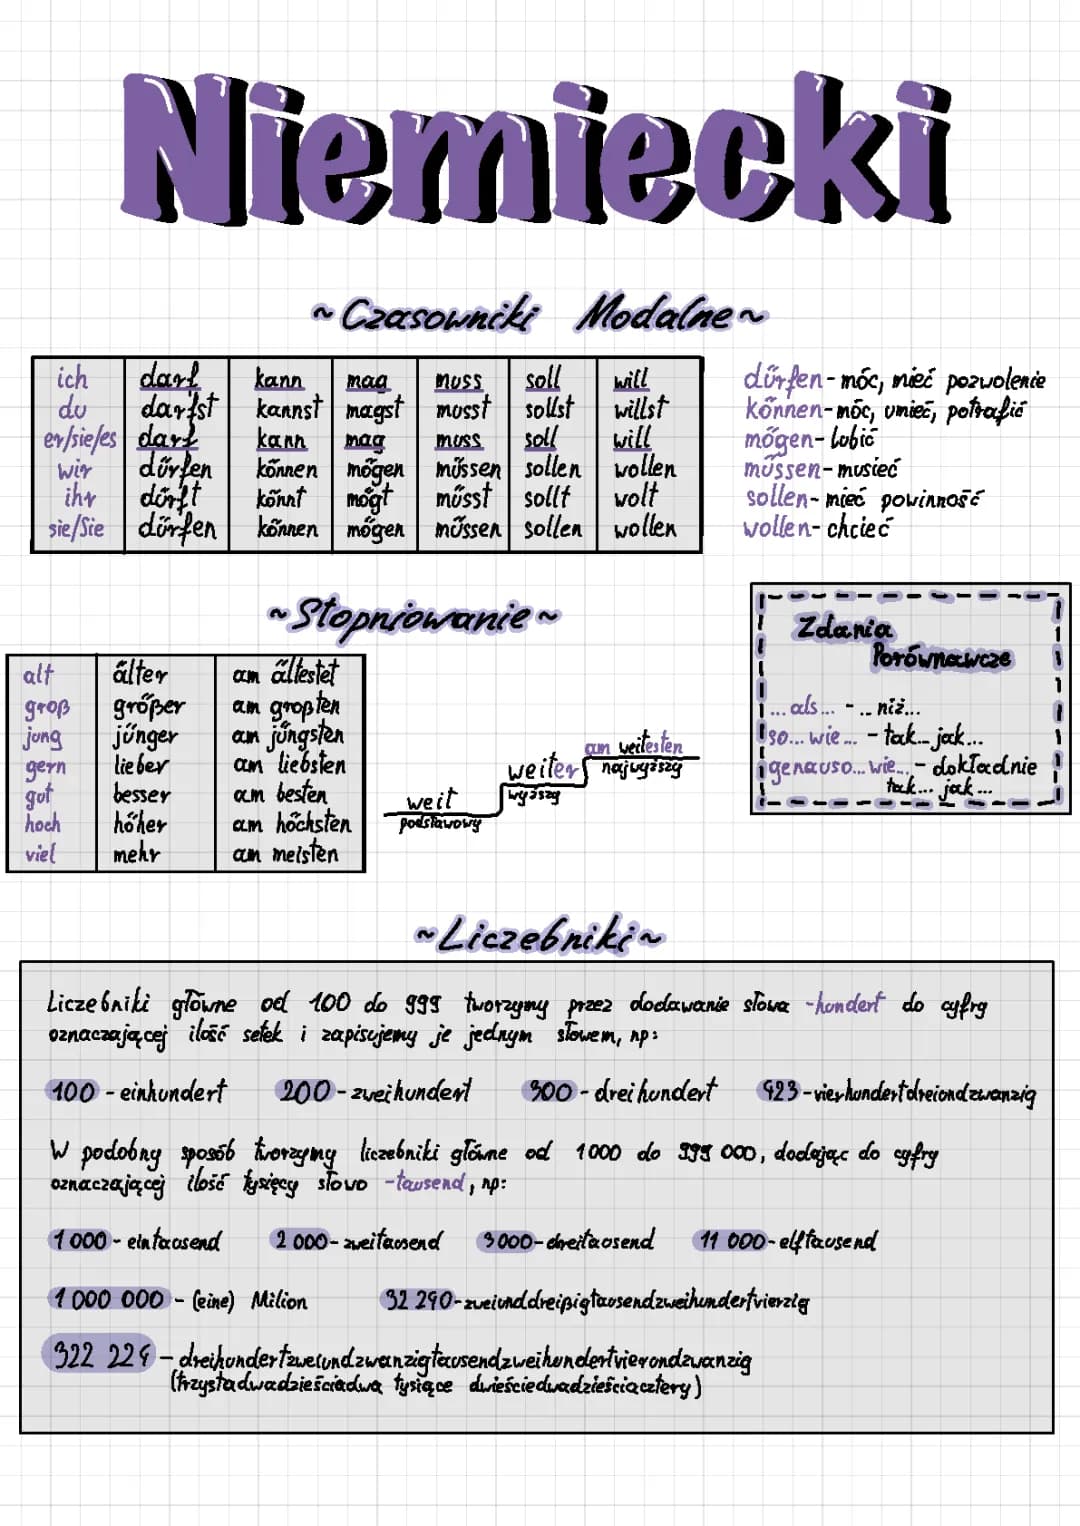 Niemiecki
~Czasowniki Modalne~
ich darf kann mag muss soll will
du darfst kannst magst musst sollst willst
er/sie/es darf kann mag muss soll will
wir dürfen können mögen müssen sollen wollen
ihr dürft könnt mögt müsst sollt wolt
sie/Sie dürfen können mögen müssen sollen wollen
dürfen - móc, mieć pozwolenie
können - móc, umieć, potrafić
mögen - lubić
müssen - musieć
sollen - mieć powinność
wollen - chcieć
~Stopniowanie~
alt älter am ältestet
groß größer am großten
jung jünger am jüngsten
gern lieber am liebsten
gut besser am besten
hoch höher am höchsten
viel mehr am meisten
weit
podstawowy
weiter
wyższy
am weitesten
najwyższy
Zdania
Porównawcze
... als... - ... niż...
so... wie... - tak... jak...
genauso... wie... - dokładnie
tak... jak...
~Liczebniki~
Liczebniki główne od 100 do 999 tworzymy przez dodawanie słowa -hundert do cyfry
oznaczającej ilość setek i zapisujemy je jednym słowem, np:
100 - einhundert 200 - zweihundert 300 - dreihundert 423 - vierhundertdreiundzwanzig
W podobny sposób tworzymy liczebniki główne od 1000 do 999 000, dodając do cyfry
oznaczającej ilość tysięcy słowo -tausend, np:
1 000 - eintausend 2 000 - zweitausend 3 000 - dreitausend 11 000 - elftausend
1 000 000 - (eine) Milion 32 240 - zweiunddreißigtausendzweihundertvierzig
322 224 - dreihundertzweiundzwanzigtausendzweihundertvierundzwanzig
(trzystadwadzieściadwa tysiące dwieściedwadzieściacztery)